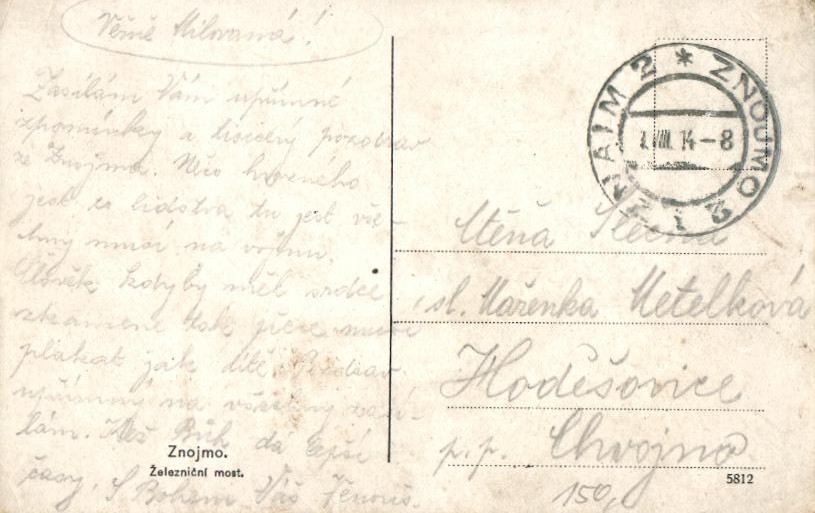 Věrně Milovaná!
Zasílám Vám upřímné
zpomínky a srdečný pozdrav
ze Znojma. Něco hrozného
jest co lidstva tu jest vše-
chny musí na vojnu.
Člověk kdyby měl srdce
zkamenělé tak přece musí
plakat jak dítě. Pozdrav
upřímný na všechny zasí-
lám. Než Bůh dá lepší
časy. S Bohem Váš
Znojmo.
Železniční most.
ZNAIM 2 * ZNOJMO 2
1. VIII. 14-8
Ctěná Slečna
sl. Mařenka Metelková
Hoděšovice
p. p. Chvojno
150,
5812